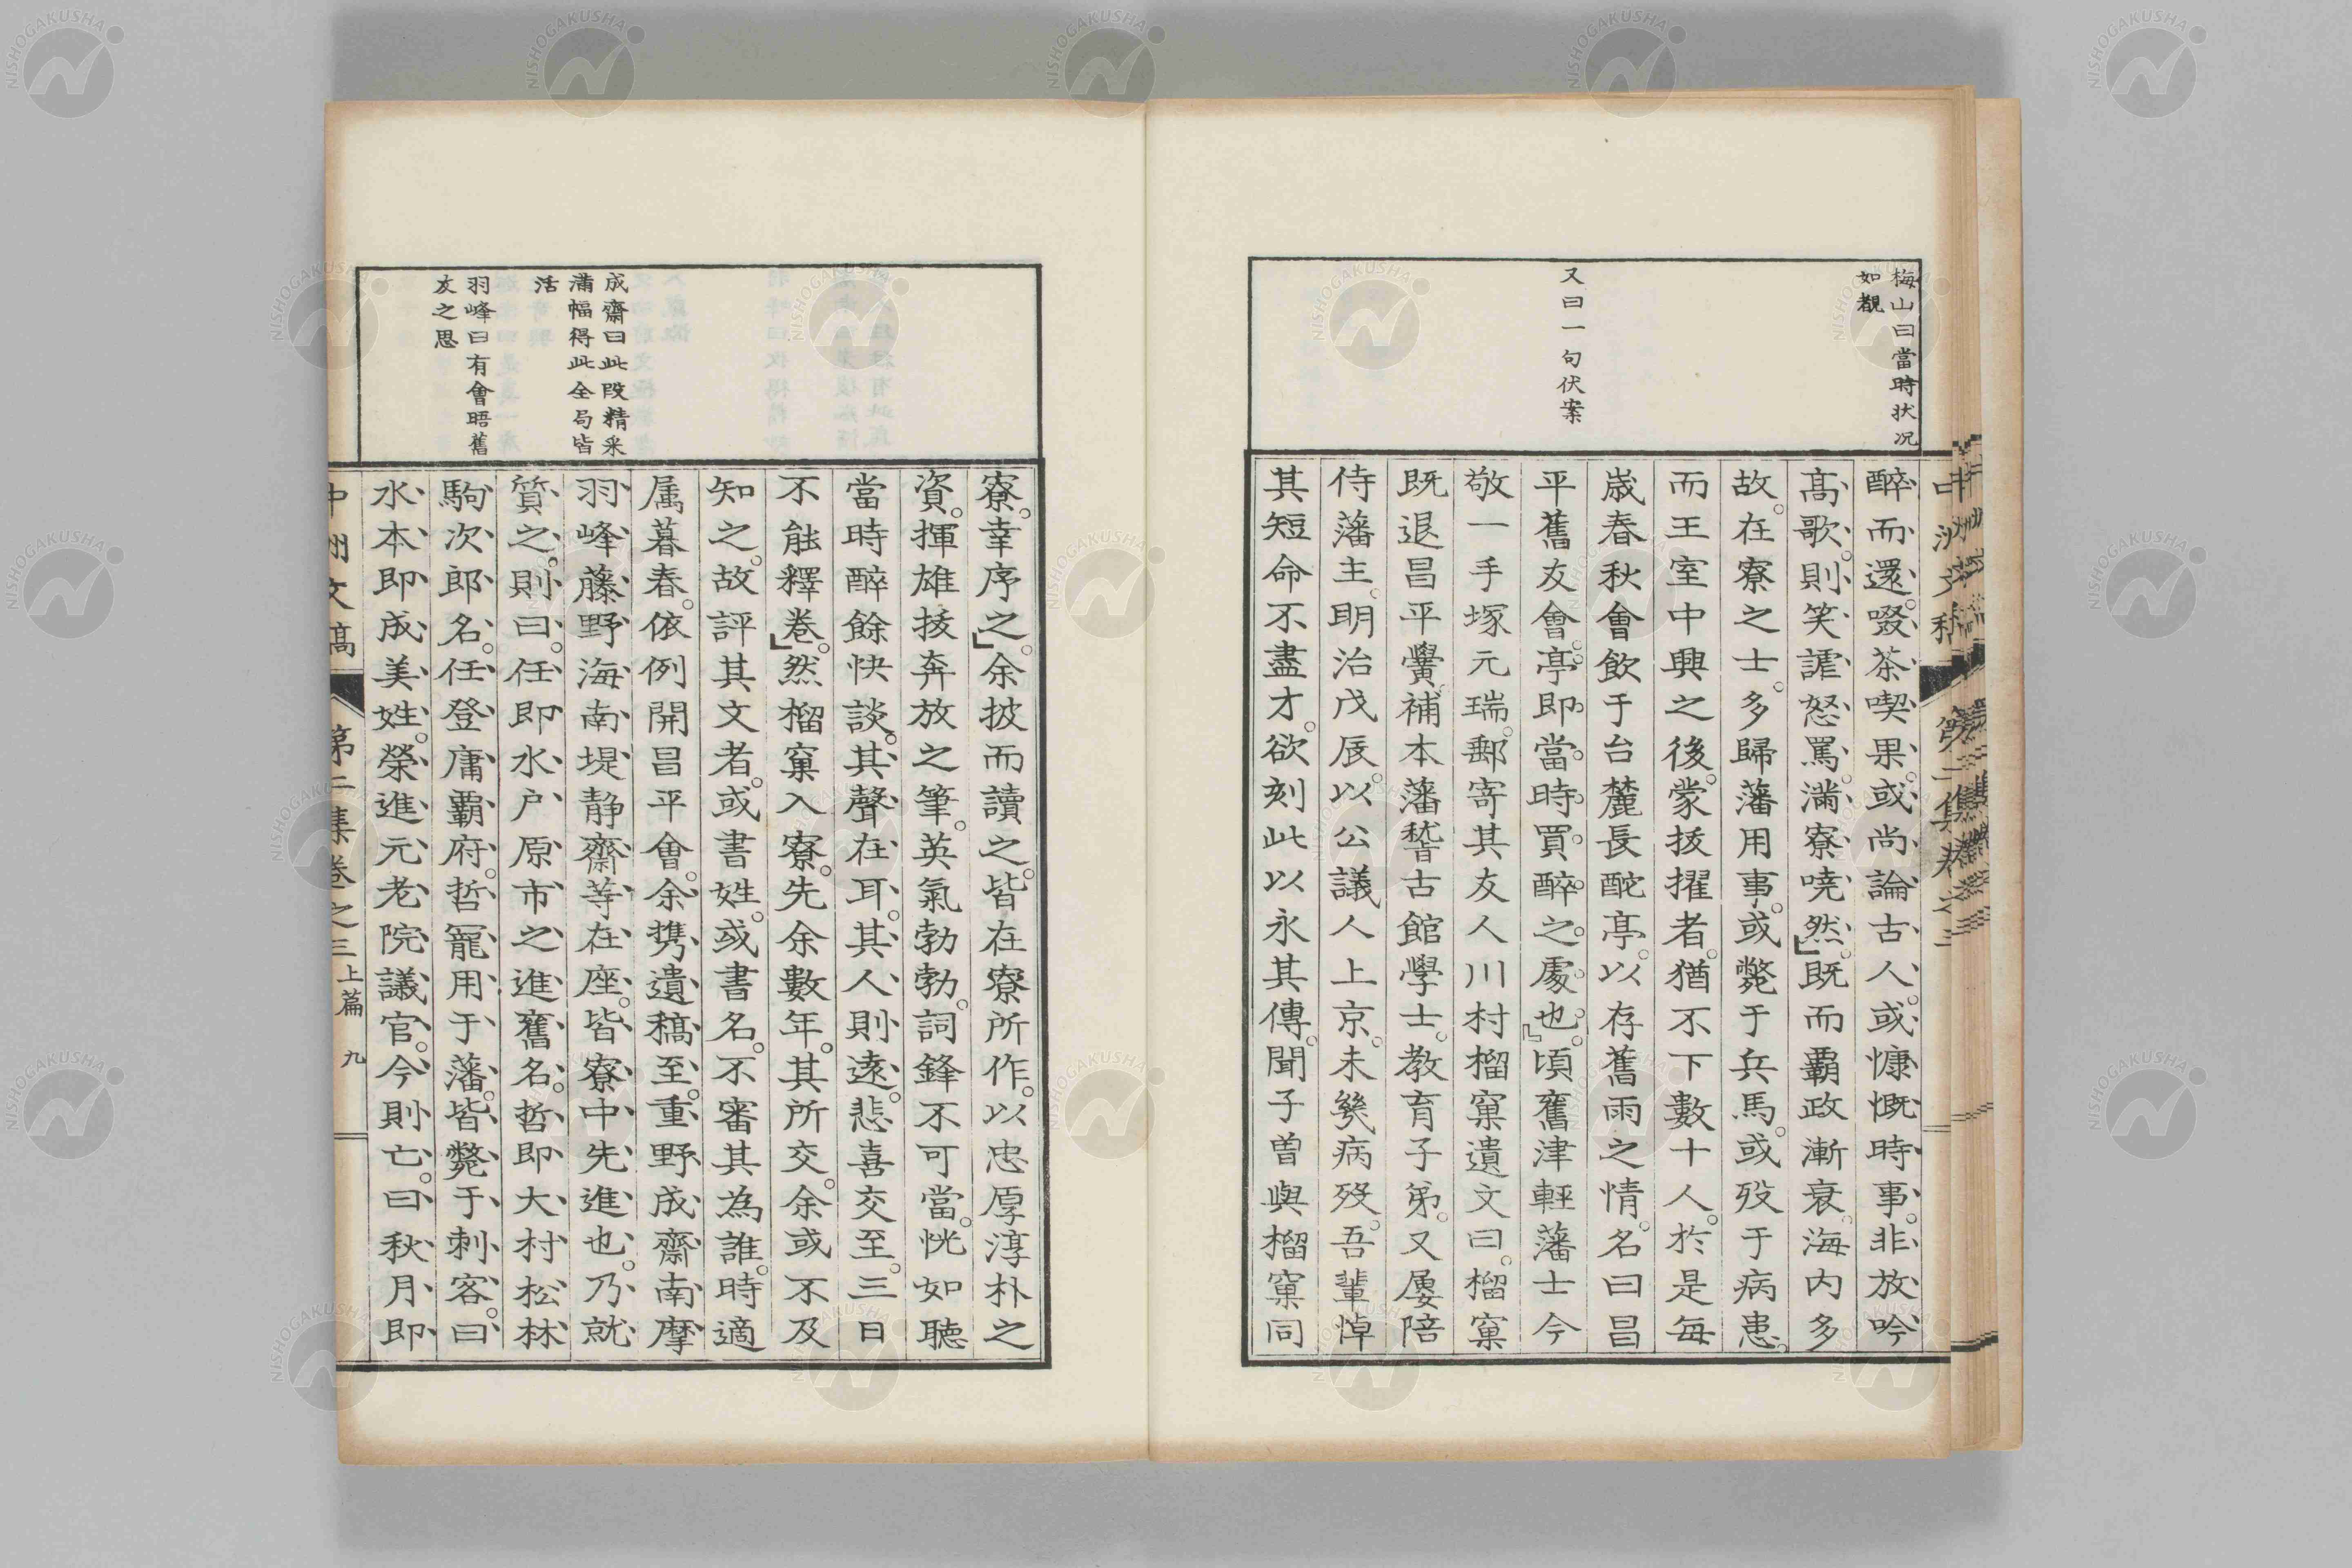 梅山曰當時狀况
如覩
又曰一句伏案
醉而還。啜茶喫果。或尚論古人。或慷慨時事。非放吟
高歌。則笑謔怒罵。滿寮喨然。」既而霸政漸衰。海内多
故。在寮之士。多歸藩用事。或斃于兵馬。或歿于病患。
而王室中興之後。蒙拔擢者。猶不下數十人。於是每
歳春秋會飲于台麓長酡亭。以存舊雨之情。名曰昌
平舊友會。亭即當時買醉之處也。』頃舊津輕藩士今
敬一手塚元瑞。郵寄其友人川村榴窠遺文曰。榴窠
既退昌平黌。補本藩稽古館學士。教育子弟。又屢陪
侍藩主。明治戊辰。以公議人上京。未幾病歿。吾輩悼
其短命不盡才。欲刻此以永其傳。聞子曽與榴窠同
寮。幸序之。」余披而讀之。皆在寮所作。以忠厚淳朴之
資。揮雄拔奔放之筆。英氣勃勃。詞鋒不可當。恍如聽
當時醉餘快談。其聲在耳。其人則遠。悲喜交至。三日
不能釋卷。」然榴窠入寮。先余數年。其所交。余或不及
知之。故評其文者。或書姓。或書名。不審其為誰。時適
属暮春。依例開昌平會。余携遺稿至。重野成齋南摩
羽峰藤野海南堤静齋等在座。皆寮中先進也。乃就
質之。則曰。任即水户原市之進舊名。哲即大村松林
駒次郎名。任登庸霸府。哲寵用于藩。皆斃于刺客。曰
水本即成美姓。榮進元老院議官。今則亡。曰秋月即
成齋曰此段精采
滿幅得此全局皆
活
羽峰曰有會晤舊
友之思
中洲文稿 第二集卷之三 上篇 九